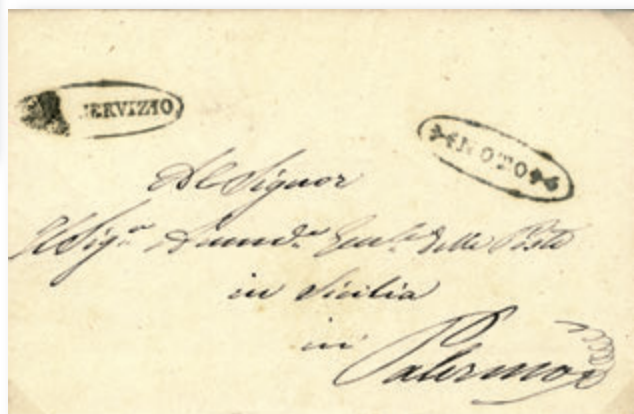 SERVIZIO
NOTO
Al Signor
Il Sig.r Ammd.r Gen.le delle Poste
in Sicilia
in
Palermo